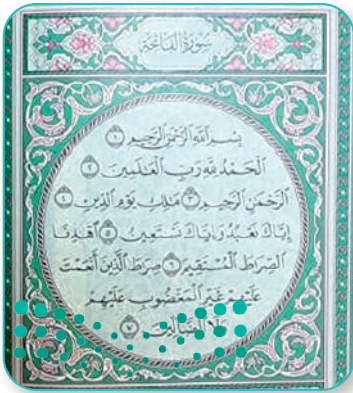 سُورَةُ الفَاتِحَةِ
بِسْمِ اللَّهِ الرَّحْمَٰنِ الرَّحِيمِ ۝١
الْحَمْدُ لِلَّهِ رَبِّ الْعَالَمِينَ ۝٢
الرَّحْمَٰنِ الرَّحِيمِ ۝٣ مَالِكِ يَوْمِ الدِّينِ ۝٤
إِيَّاكَ نَعْبُدُ وَإِيَّاكَ نَسْتَعِينُ ۝٥ اهْدِنَا
الصِّرَاطَ الْمُسْتَقِيمَ ۝٦ صِرَاطَ الَّذِينَ أَنْعَمْتَ
عَلَيْهِمْ غَيْرِ الْمَغْضُوبِ عَلَيْهِمْ
وَلَا الضَّالِّينَ ۝٧